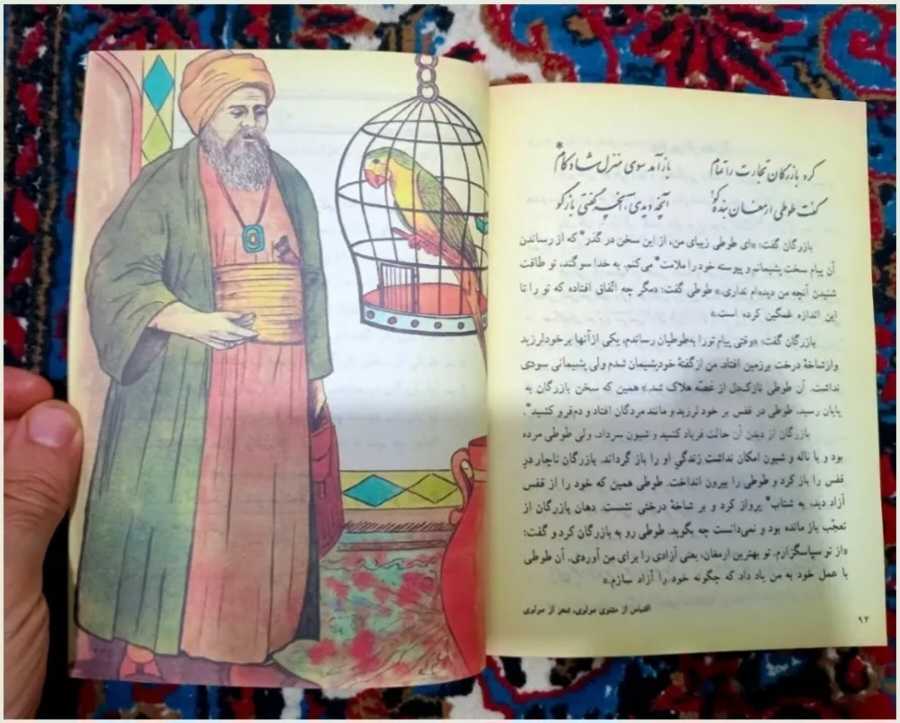 کرد بازرگان تجارت را تمام
بازآمد سوی منزل شاد کام*
گفت طوطی ارمغان بنده کو؟
آنچه دیدی، آنچه گفتی بازگو
بازرگان گفت: «ای طوطی زیبای من، از این سخن در گذر* که از رساندن
آن پیام سخت پشیمانم و پیوسته خود را ملامت* می‌کنم. به خدا سوگند، تو طاقت
شنیدن آنچه من دیده‌ام نداری.» طوطی گفت: «مگر چه اتّفاق افتاده که تو را تا
این اندازه غمگین کرده است.»
بازرگان گفت: «وقتی پیام تورا به‌طوطیان رساندم، یکی ازآنها برخودلرزید
وازشاخهٔ درخت برزمین افتاد. من ازگفتهٔ خودپشیمان شدم ولی پشیمانی سودی
نداشت. آن طوطی نازک‌دل از غصّه هلاک شد.» همین که سخن بازرگان به
پایان رسید، طوطی در قفس بر خود لرزید و مانند مردگان افتاد و دم‌فرو کشید*.
بازرگان از دیدن آن حالت فریاد کشید و شیون سرداد. ولی طوطی مرده
بود و با ناله و شیون امکان نداشت زندگیِ او را باز گرداند. بازرگان ناچار درِ
قفس را باز کرد و طوطی را بیرون انداخت. طوطی همین که خود را از قفس
آزاد دید، به شتاب* پرواز کرد و بر شاخهٔ درختی نشست. دهان بازرگان از
تعجّب باز مانده بود و نمی‌دانست چه بگوید. طوطی رو به بازرگان کرد و گفت:
«از تو سپاسگزارم. تو بهترین ارمغان، یعنی آزادی را برای من آوردی. آن طوطی
با عمل خود به من یاد داد که چگونه خود را آزاد سازم.»
اقتباس از مثنوی مولوی، شعر از مولوی
۹۲